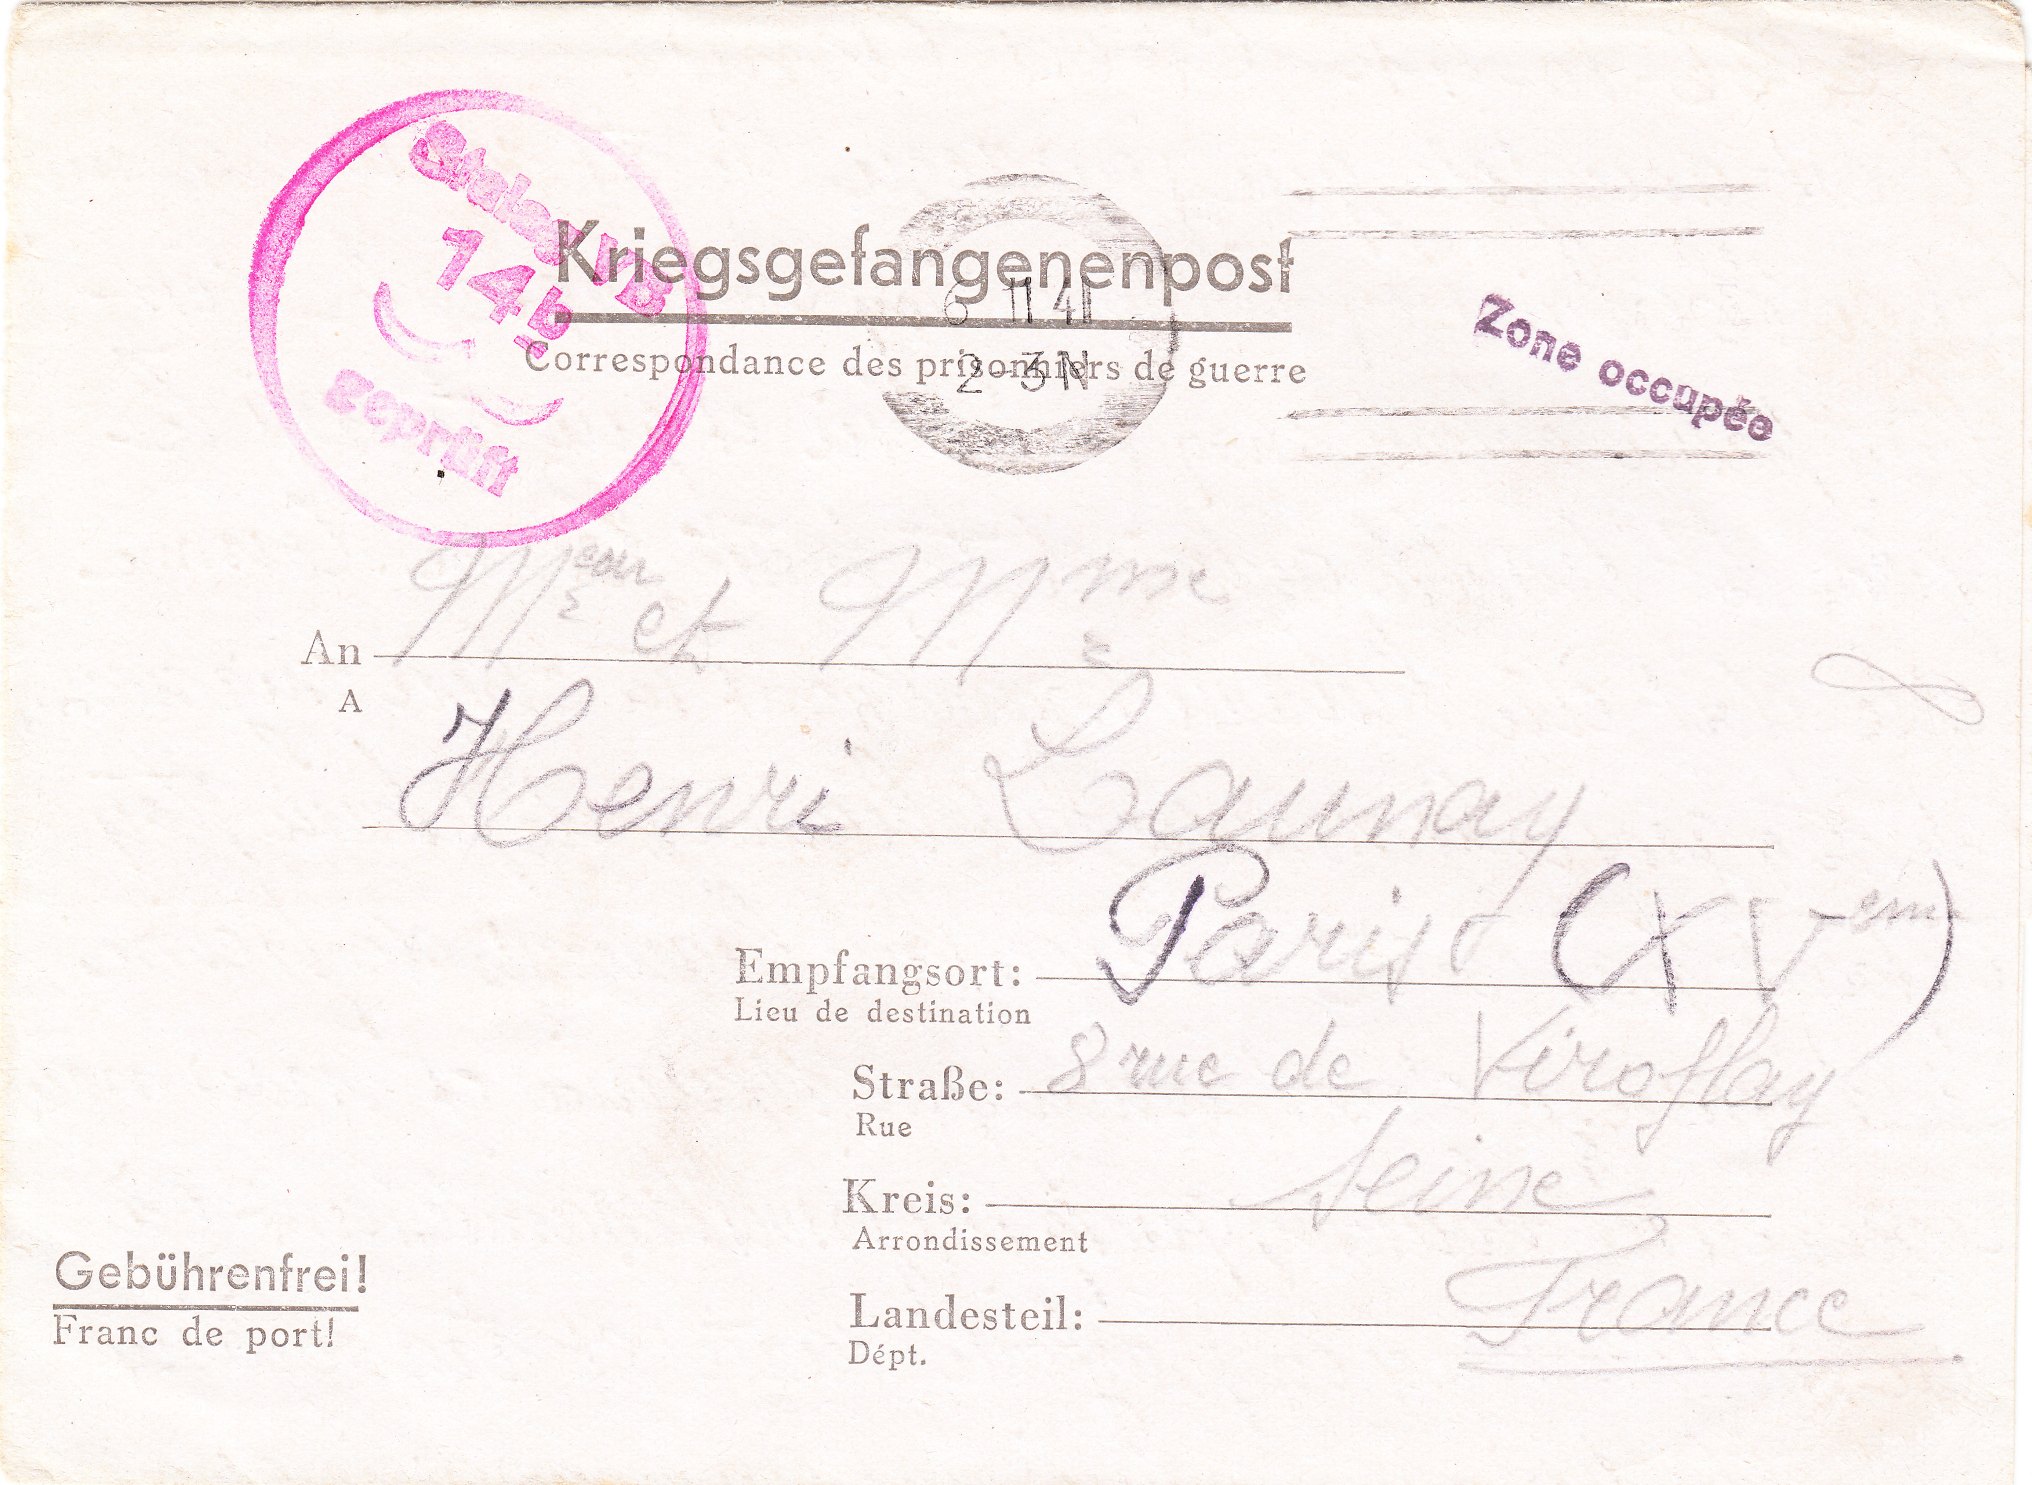 Stalag VB
14b
geprüft
Kriegsgefangenenpost
6 11 41
2-3N
Correspondance des prisonniers de guerre
Zone occupée
Meur et Mme
An
A
Henri Launay
Paris (XVem)
Empfangsort:
Lieu de destination
8 rue de Viroflay
Straße:
Rue
Seine
Kreis:
Arrondissement
France
Landesteil:
Dépt.
Gebührenfrei!
Franc de port!